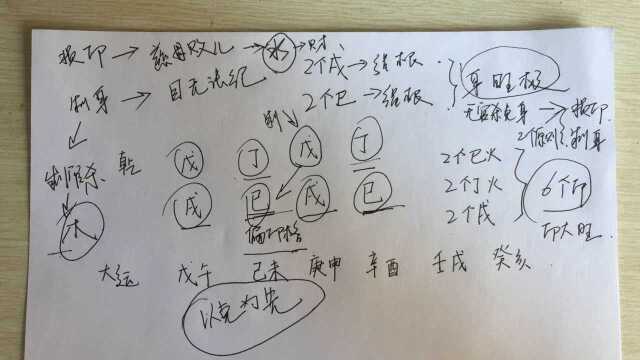 损印→慈母败儿→水→财
制身→目无法纪
2个戌→结根
2个巳→结根
身旺极
无官杀克身→损印
2个原则:制身
官杀
木
制
乾 戊 丁 戊 丁
戌 巳 戌 巳
偏印格
2个巳火
2个丁火
2个戌
6个印
印大旺
大运 戊午 己未 庚申 辛酉 壬戌 癸亥
以克为先